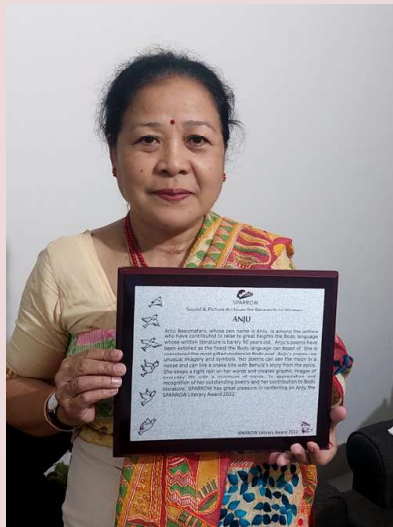 SPARROW
Sound & Picture Archives for Research on Women
ANJU
Anju Basumatary, whose pen name is Anju, is among the writers
who have contributed to raise to great heights the Bodo language
whose written literature is barely 90 years old. Anju's poems have
been extolled as the finest the Bodo language can boast of. She is
considered the most gifted modernist Bodo poet. Anju's poems use
unusual imagery and symbols. Her poems can see the moon in a
noose and can link a snake bite with Behula's story from the epics.
She keeps a tight rein on her words and creates graphic images of
everyday life with a minimum of words. In appreciation and
recognition of her outstanding poetry and her contribution to Bodo
literature, SPARROW has great pleasure in conferring on Anju the
SPARROW Literary Award 2022.
SPARROW Literary Award 2022